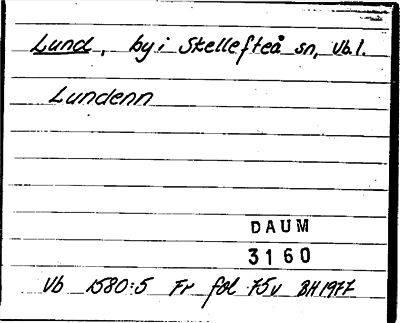 Lund, by i Skellefteå sn, Vb. l.
Lundenn
DAUM
3160
Vb 1580:5 Fr fol 75v BH 1977